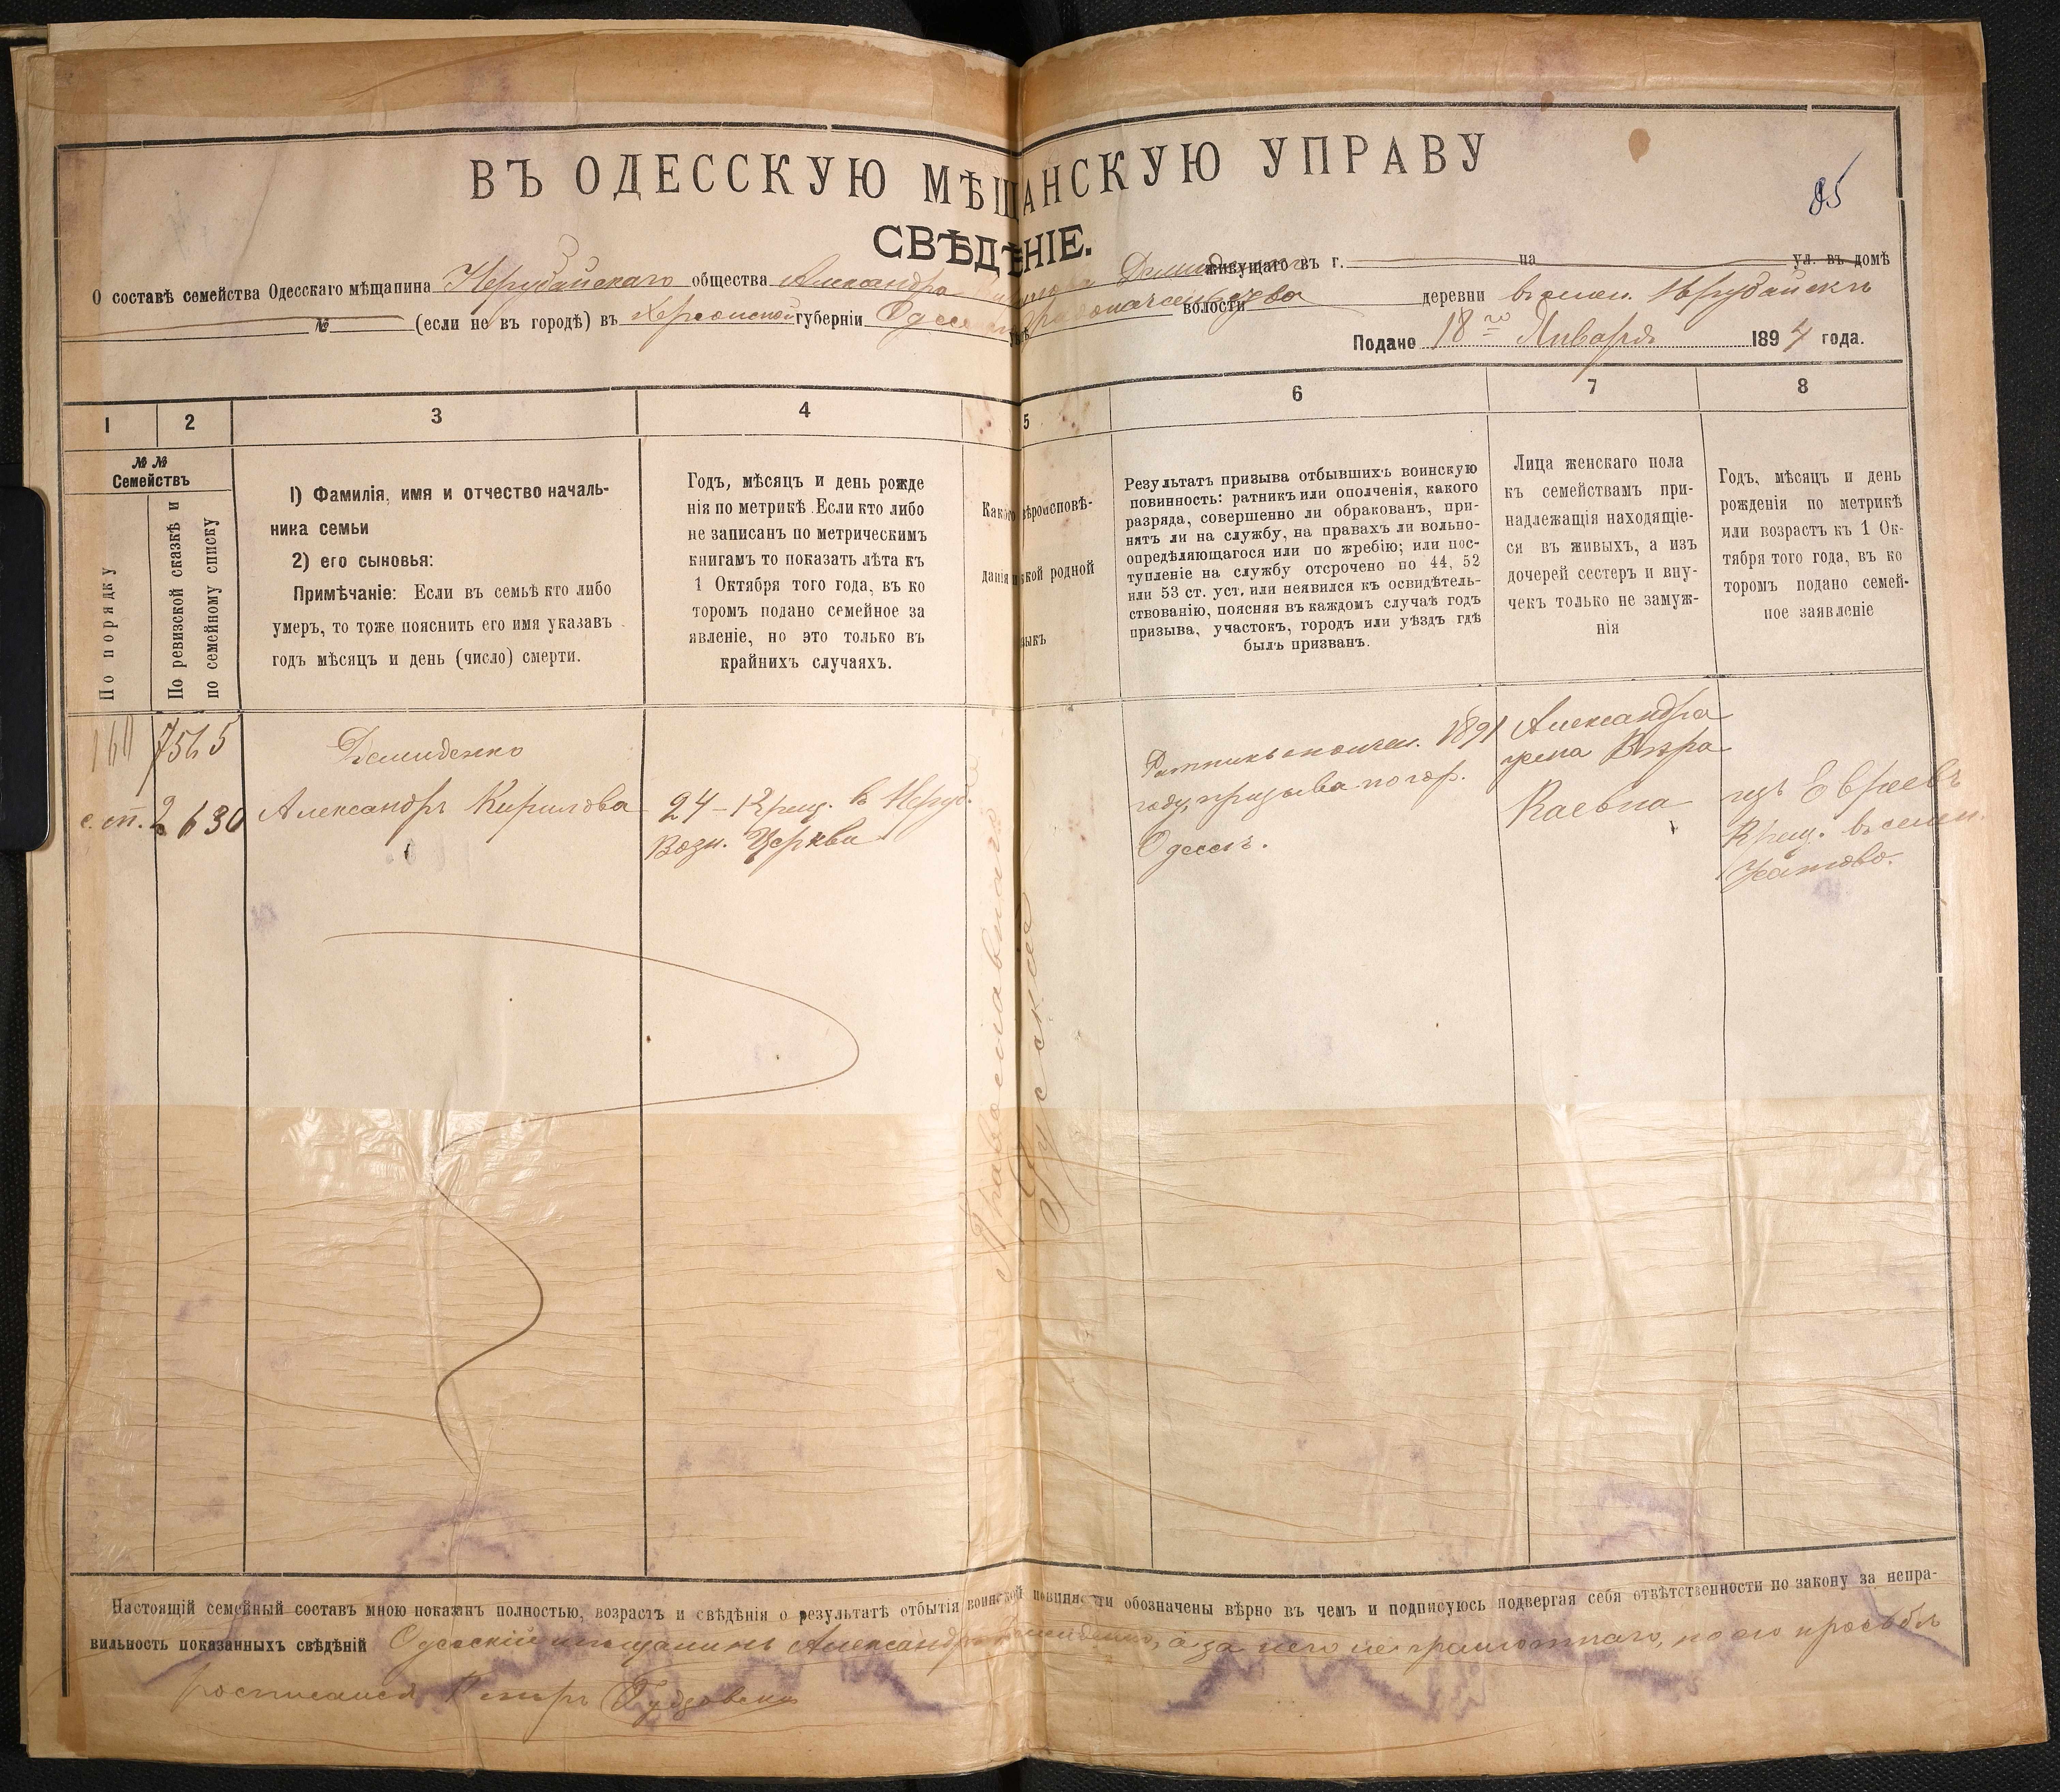 85
ВЪ ОДЕССКУЮ МѢЩАНСКУЮ УПРАВУ
СВѢДѢНІЕ.
О составѣ семейства Одесскаго мѣщанина Нерубайскаго общества Александра Демиденко живущаго въ г. на ул. въ домѣ
№ (если не въ городѣ) въ Херсонской губерніи Градоначальства волости деревни въ селен. Нерубайскъ
Подано 18го Января 1894 года.
1 2 3 4 5 6 7 8
№ № Семействъ
По порядку
По ревизской сказкѣ и по семейному списку
1) Фамилія, имя и отчество началь-
ника семьи
2) его сыновья:
Примѣчаніе: Если въ семьѣ кто либо
умеръ, то тоже пояснить его имя указавъ
годъ мѣсяцъ и день (число) смерти.
Годъ, мѣсяцъ и день рожде
нія по метрикѣ. Если кто либо
не записанъ по метрическимъ
книгамъ то показать лѣта къ
1 Октября того года, въ ко
торомъ подано семейное за
явленіе, но это только въ
крайнихъ случаяхъ.
Какого вѣроисповѣ-
данія и какой родной
языкъ
Результатъ призыва отбывшихъ воинскую
повинность: ратникъ или ополченія, какого
разряда, совершенно ли обракованъ, при-
нятъ ли на службу, на правахъ ли вольно-
опредѣляющагося или по жребію; или пос-
тупленіе на службу отсрочено по 44, 52
или 53 ст. уст. или неявился къ освидѣтель-
ствованію, поясняя въ каждомъ случаѣ годъ
призыва, участокъ, городъ или уѣздъ гдѣ
былъ призванъ.
Лица женскаго пола
къ семействамъ при-
надлежащія находящіе-
ся въ живыхъ, а изъ
дочерей сестеръ и вну-
чекъ только не замуж-
нія
Годъ, мѣсяцъ и день
рожденія по метрикѣ
или возрастъ къ 1 Ок-
тября того года, въ ко
торомъ подано семей-
ное заявленіе
160 7565
с. сп. 2630
Демиденко
Александръ Кирилова
24 – Крещ. в Неруб.
Возн. Церкви
Православнаго
Русскій
Ратникъ ополчен. 1891
году, призыва по гор.
Одессѣ.
Александра
жена Вѣра
Раевна
изъ Евреевъ
Крещ. въ селен.
Усатово.
Настоящій семейный составъ мною показанъ полностью, возрастъ и свѣдѣнія о результатѣ отбытія воинской повинности обозначены вѣрно въ чемъ и подписуюсь подвергая себя отвѣтственности по закону за непра-
вильность показанныхъ свѣдѣній Одесскій мѣщанинъ Александръ Демиденко, а за него неграмотнаго, по его просьбѣ
росписался Петръ